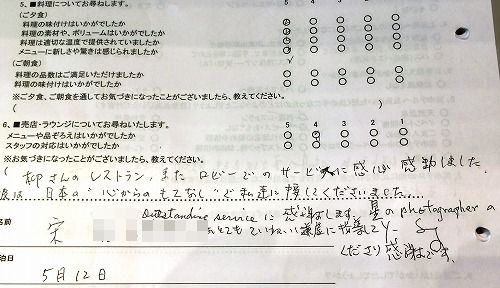 5、■料理についてお尋ねします。
(ご夕食)
料理の味付けはいかがでしたか
料理の素材や、ボリュームはいかがでしたか
料理は適切な温度で提供されていましたか
メニューに新しさや驚きは感じられましたか
(ご朝食)
料理の品数はご満足いただけましたか
料理の味付けはいかがでしたか
※ご夕食、ご朝食を通してお気づきになったことがございましたら、教えてください。
( )
6、■売店・ラウンジについてお尋ねいたします。 5 4 3 2 1
メニューや品ぞろえはいかがでしたか
スタッフの対応はいかがでしたか
※お気づきになったことがございましたら、教えてください。
( 柳さんのレストラン、また ロビーでの サービスに 感心 感動しました。
は、日本の"心からのもてなし"で私達に接してくださいました。
Outstanding serviceに 感謝します。星のphotographer の
名前 宋
とてもていねいに
くださり感謝です。
泊日
5月12日